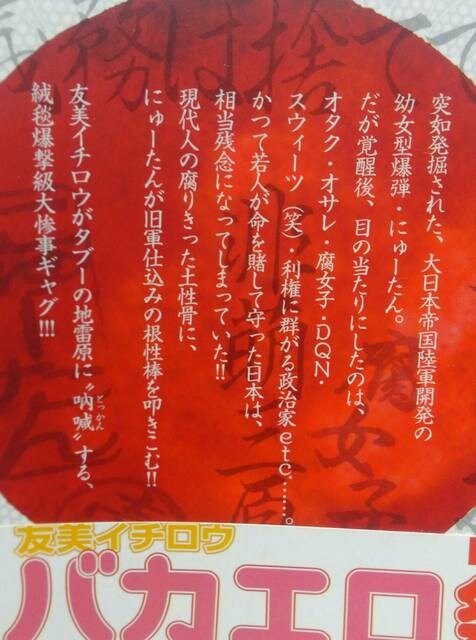 突如発掘された、大日本帝国陸軍開発の
幼女型爆弾・にゅーたん。
だが覚醒後、目の当たりにしたのは、
オタク・オサレ・腐女子・DQN・
スウィーツ(笑)・利権に群がる政治家etc……。
かつて若人が命を賭して守った日本は、
相当残念になってしまっていた!!
現代人の腐りきった土性骨に、
にゅーたんが旧軍仕込みの根性棒を叩きこむ!!
友美イチロウがタブーの地雷原に〝吶喊〟する、
とっかん
絨毯爆撃級大惨事ギャグ!!!
務は捨てて
腐女子
非萌三原
友美イチロウ
バカエロ